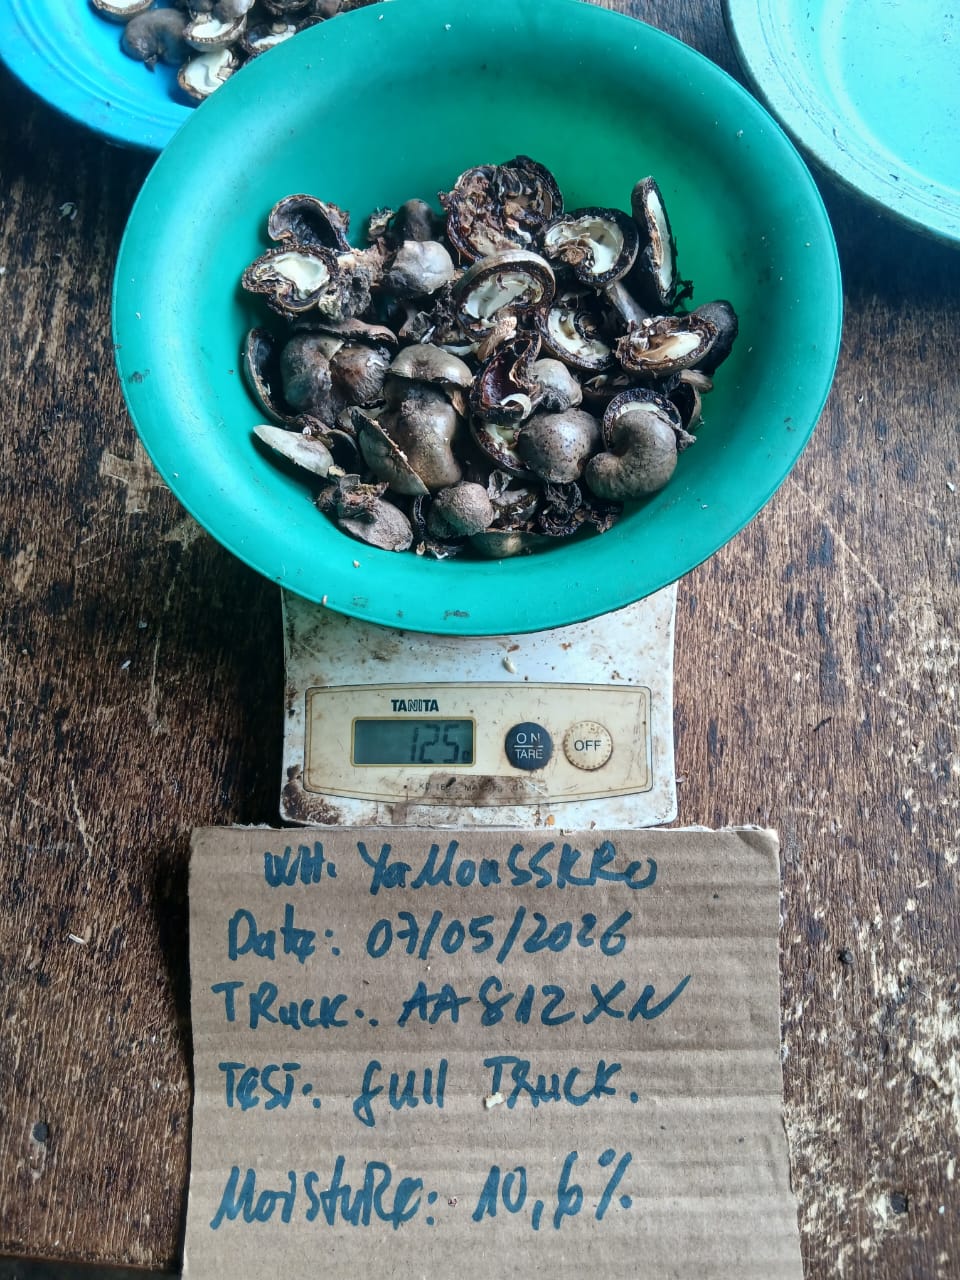 TANITA
125g
ON
TARE
OFF
WH. YaMouSSKRo
Date: 07/05/2026
TRuck.. AA812XN
TEST:. full TRuck.
MoistuRe: 10,6%